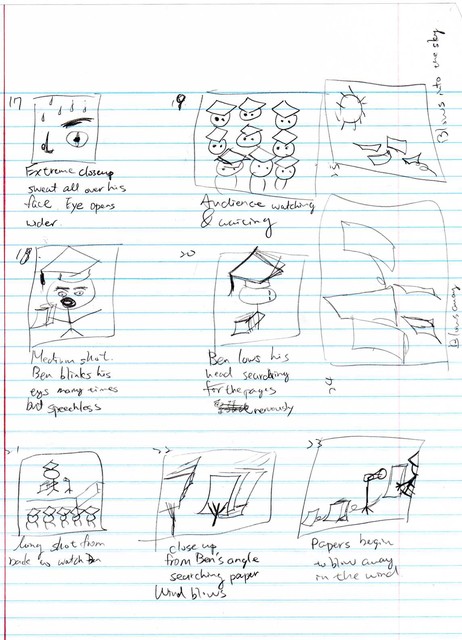 17
Extreme closeup
sweat all over his
face Eye opens
wider.
18
Medium shot.
Ben blinks his
eys many times
but speechless
19
Audience watching
& waiting
20
Ben lows his
head searching
for the pages
nervously
21
long shot from
back to watch Ben
22
close up
from Ben's angle
searching paper
Wind blows
23
Papers begin
to blow away
in the wind
24
Blows away
25
Blows into the sky